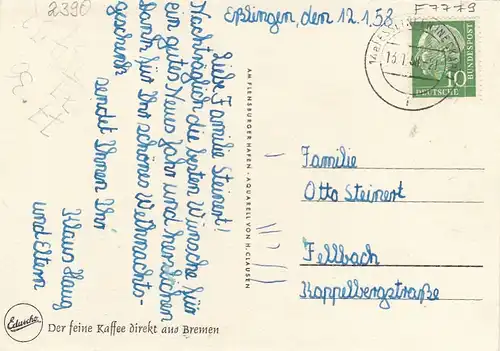 2390
Eßlingen, den 12.1.58
F 7779
Liebe Familie Steinert!
Nachträglich die besten Wünsche für
ein gutes Neues Jahr und herzlichen
Dank für Ihr schönes Weihnachts-
geschenk
sendet Ihnen Ihr
Klaus Haug
und Eltern
AM FLENSBURGER HAFEN - AQUARELL VON H. CLAUSEN
10
DEUTSCHE
BUNDESPOST
Familie
Otto Steinert
Fellbach
Kappelbergstraße
Eduscho
Der feine Kaffee direkt aus Bremen